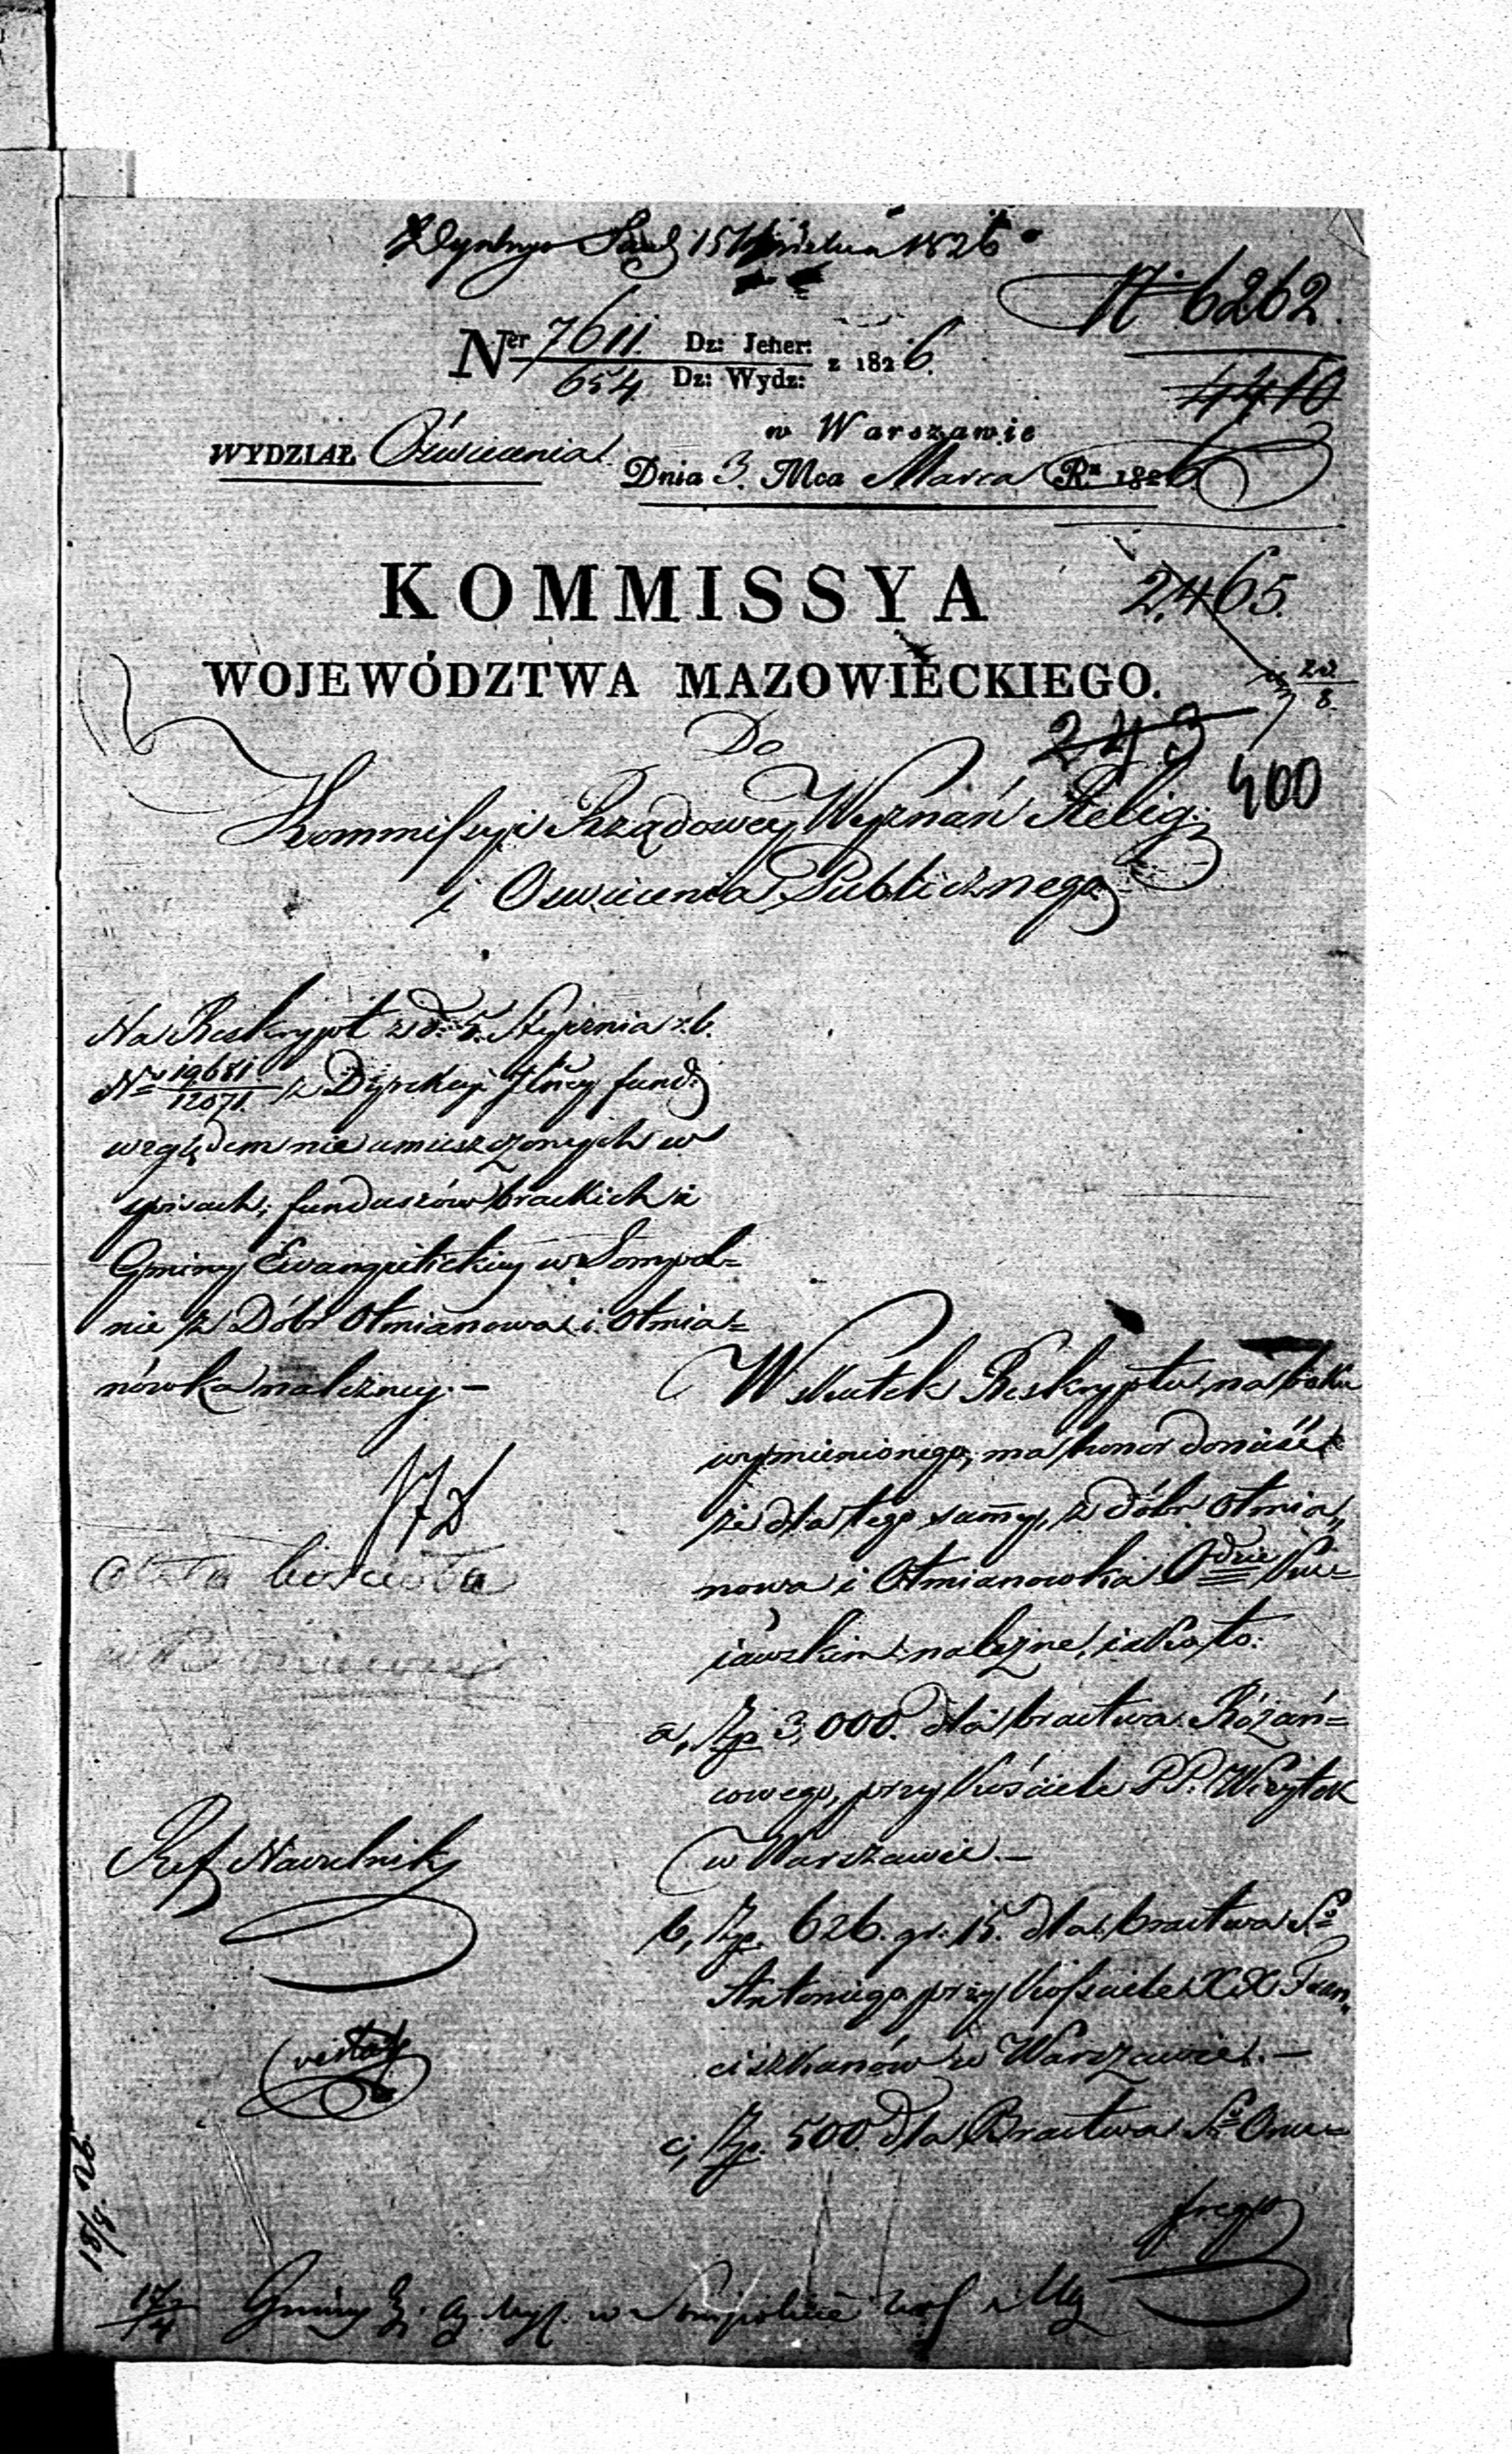 15 Kwietnia 1826
N 6262
Ner 7611. Dz: Jener: z 1826.
654 Dz: Wydz:
4410
w Warszawie
WYDZIAŁ Oświecenia
Dnia 3. Mca Marca Ru 1826
KOMMISSYA
2,465.
WOJEWÓDZTWA MAZOWIECKIEGO.
20
8.
Do
243
400
Kommissyi Rządowey Wyznań Relig:
i Oswiecenia Publicznego
Na Reskrypt z d. 5. Stycznia r.b.
No 19681. z Dyrekcyi fund:
12071.
względem nie umieszczonych w
spisach, funduszów brackich i
Gminy Ewangelickiey w Sompol=
nie z Dóbr Otmianowa i Otmia=
nówka należney. —
Wskutek Reskryptu na boku
wymienionego, ma honor donieść
że dla tego summy, z dóbr Otmia„
nowa i Otmianowka Odzie Ku=
iawskim należne, iako to:
a, Zp 3,000. dla bractwa Różań=
cowego, przy Kościele P.P. Wizytek
w Warszawie. —
b, Zp. 626. gr. 15. dla bractwa So
Antoniego przy Kościele XX. Fran„
ciszkanów w Warszawie. —
c, Zp. 500. dla Bractwa So Onu=
frego
Ref Naczelnik
18/9. 26.
17
4
Gminy w Sompolnie